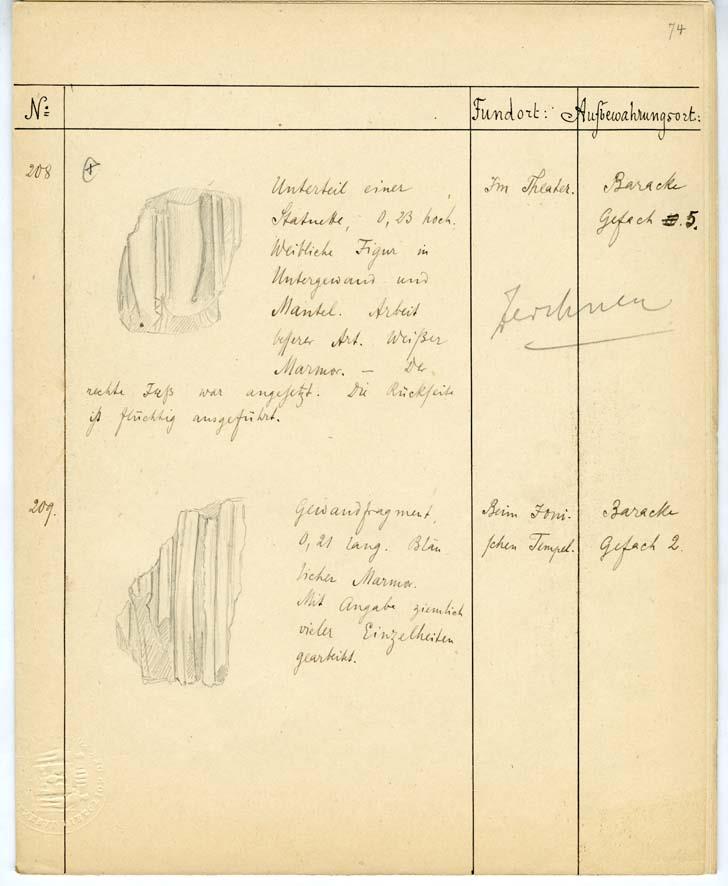 74
No: Fundort: Aufbewahrungsort:
208 +
Unterteil einer
Statuette, 0,23 hoch.
Weibliche Figur in
Untergewand und
Mantel. Arbeit
besserer Art. Weißer
Marmor. — Der
rechte Fuß war angesetzt. Die Rückseite
ist flüchtig ausgeführt.
Im Theater.
Baracke
Gefach 5.
Zeichnen
209.
Gewandfragment,
0,21 lang. Bläu
licher Marmor.
Mit Angabe ziemlich
vieler Einzelheiten
gearbeitet.
Beim Joni-
schen Tempel.
Baracke
Gefach 2.